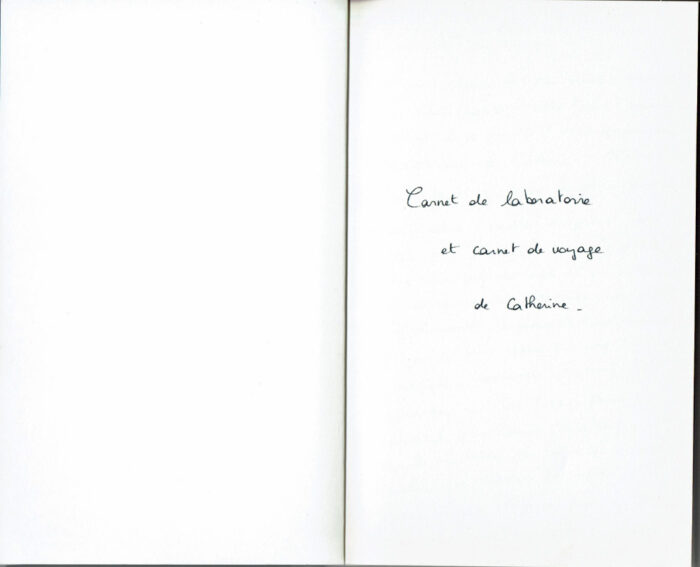 Carnet de laboratoire
et carnet de voyage
de Catherine.